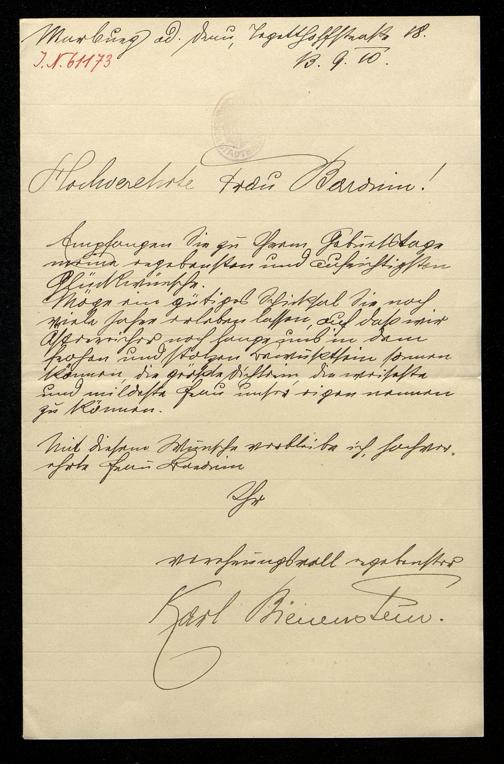 Marburg a/d. Drau, Tegetthoffstraße 18.
J.N. 61173
13. 9. 10.
Hochverehrte Frau Baronin!
Empfangen Sie zu Ihrem Geburtstage
meine ergebensten und aufrichtigsten
Glückwünsche.
Möge ein gütiges Schicksal Sie noch
viele Jahre erleben lassen, auf daß wir
Österreicher noch lange uns in dem
frohen und stolzen Bewußtsein sonnen
können, die größte Dichterin, die weiseste
und mildeste Frau unser eigen nennen
zu können.
Mit diesem Wunsche verbleibe ich, hochver-
ehrte Frau Baronin
Ihr
verehrungsvoll ergebenster
Karl Bienenstein.